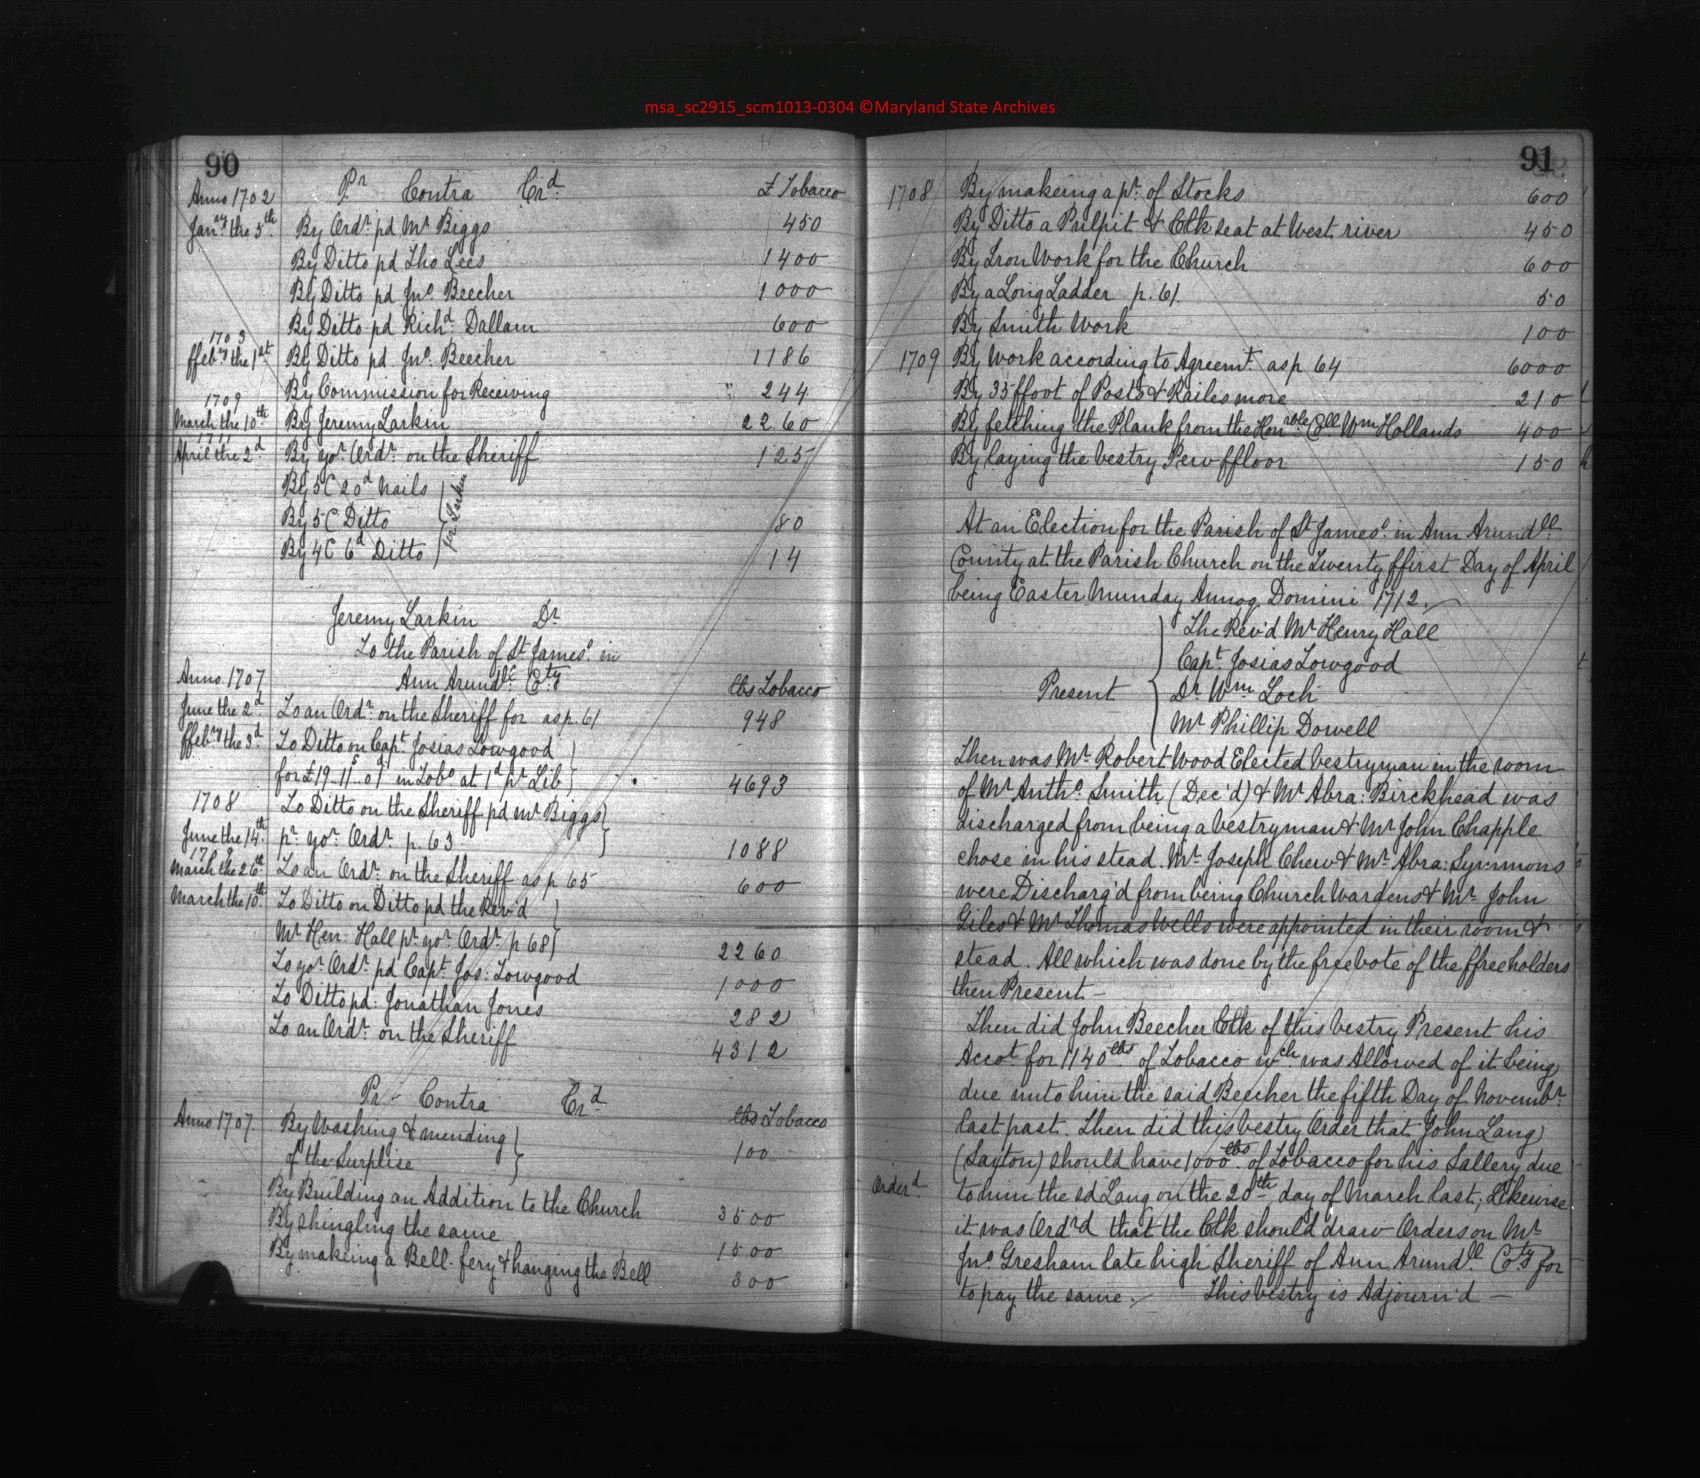 msa_sc2915_scm1013-0304 ©Maryland State Archives
90
Anno 1702 Pr Contra Crd £ Tobacco
Janry the 5th By Ordr pd Mr Biggs 450
By Ditto pd Tho Lees 1400
By Ditto pd Jno. Beecher 1000
By Ditto pd Richd. Dallam 600
1703
ffebry the 1st By Ditto pd Jno. Beecher 1186
By Commission for Receiving " 244
1709
March the 10th By Jeremy Larkin 2260
1711
April the 2d By yor. Ordr. on the Sheriff 125
By 5C 20d Nails
By 5C Ditto 80
By 4C 6d Ditto 14
pr Larkin
Jeremy Larkin Dr
To the Parish of St James's in
Anno 1707 Ann Arundll Coty lbs Tobacco
June the 2d To an Ordr. on the Sheriff for asp. 61 948
ffebry the 3d To Ditto on Capt. Josias Towgood
for £19..11s..0d in Tobo at 1d pr Lib 4693
1708 To Ditto on the Sheriff pd Mr Biggs
June the 14th pr. yor. Ordr. p. 63 1088
March the 26th To an Ordr. on the Sheriff asp 65 600
March the 10th To Ditto on Ditto pd the Rev'd
Mr Hen: Hall pr. yor. Ordr. p 68 2260
To yor. Ordr. pd Capt. Jos: Towgood 1000
To Ditto pd: Jonathan Jones 282
To an Ordr. on the Sheriff 4312
Pr Contra Crd
lbs Tobacco
Anno 1707 By Washing & mending
of the Surplise 100
By Building an Addition to the Church 3500
By Shingling the same 1500
By makeing a Bell-fery & hanging the Bell 300
91
1708 By makeing a pr. of Stocks 600
By Ditto a Pulpit & Clk seat at West river 450
By Iron Work for the Church 600
By a Long Ladder p. 61. 50
By Smith Work 100
1709 By Work according to Agreemt. asp 64 6000
By 35 ffoot of Posts & Railes more 210
By fetching the Plank from the Honrble Coll Wm Hollands 400
By laying the Vestry Pew ffloor 150
At an Election for the Parish of St James's in Ann Arundll
County at the Parish Church on the Twenty ffirst Day of April
being Easter Munday Annoq Domini 1712.
The Rev'd Mr Henry Hall
Capt. Josias Towgood
Present Dr Wm Loch
Mr Phillip Dowell
Then was Mr. Robert Wood Elected Vestryman in the room
of Mr Antho. Smith (Dec'd) & Mr Abra: Birckhead was
discharged from being a Vestryman & Mr John Chapple
chose in his stead. Mr Joseph Chew & Mr. Abra: Symmons
were Discharg'd from being Church Wardens & Mr John
Giles & Mr Thomas Wells were appointed in their room &
stead. All which was done by the free vote of the ffreeholders
then Present —
Then did John Beecher Clk of this Vestry Present his
Accot for 1140lbs of Tobacco wch was Allowed of it being
due unto him the said Beecher the fifth Day of Novembr.
last past. Then did this Vestry Order that John Lang
(Saxton) should have 1000lbs of Tobacco for his Sallery due
Orderd to him the sd Lang on the 20th day of March last; Likewise
it was Ord'd that the Clk should draw Orders on Mr
Jno Gresham late high Sheriff of Ann Arundll Coty for
to pay the same. This Vestry is Adjourn'd —